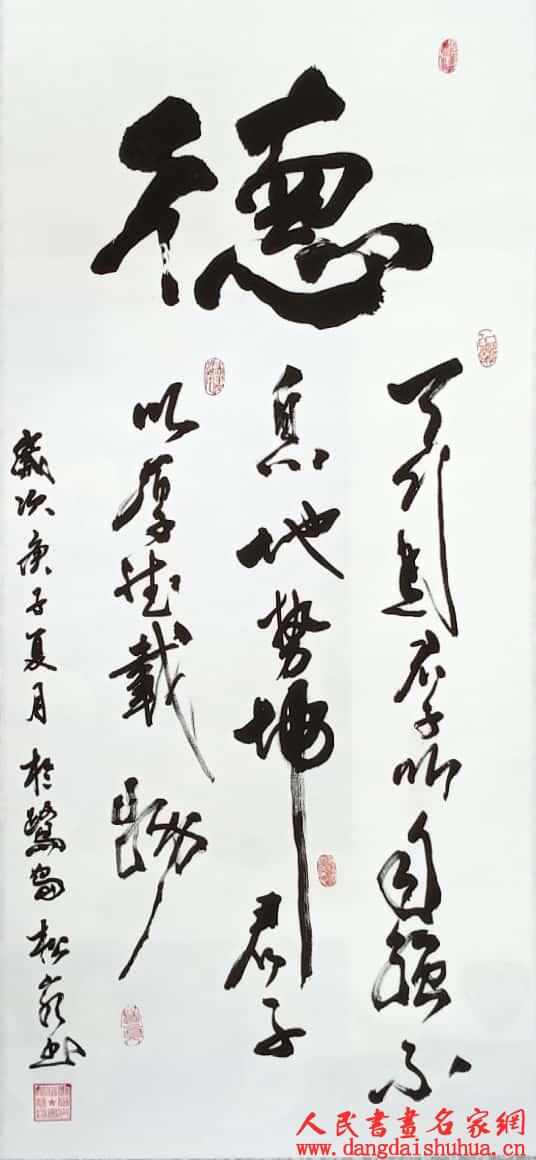 德
天行健君子以自強不
息地勢坤君子
以厚德載物
歲次庚子夏月於鷺島松書
人民書畫名家網
www.dangdaishuhua.cn